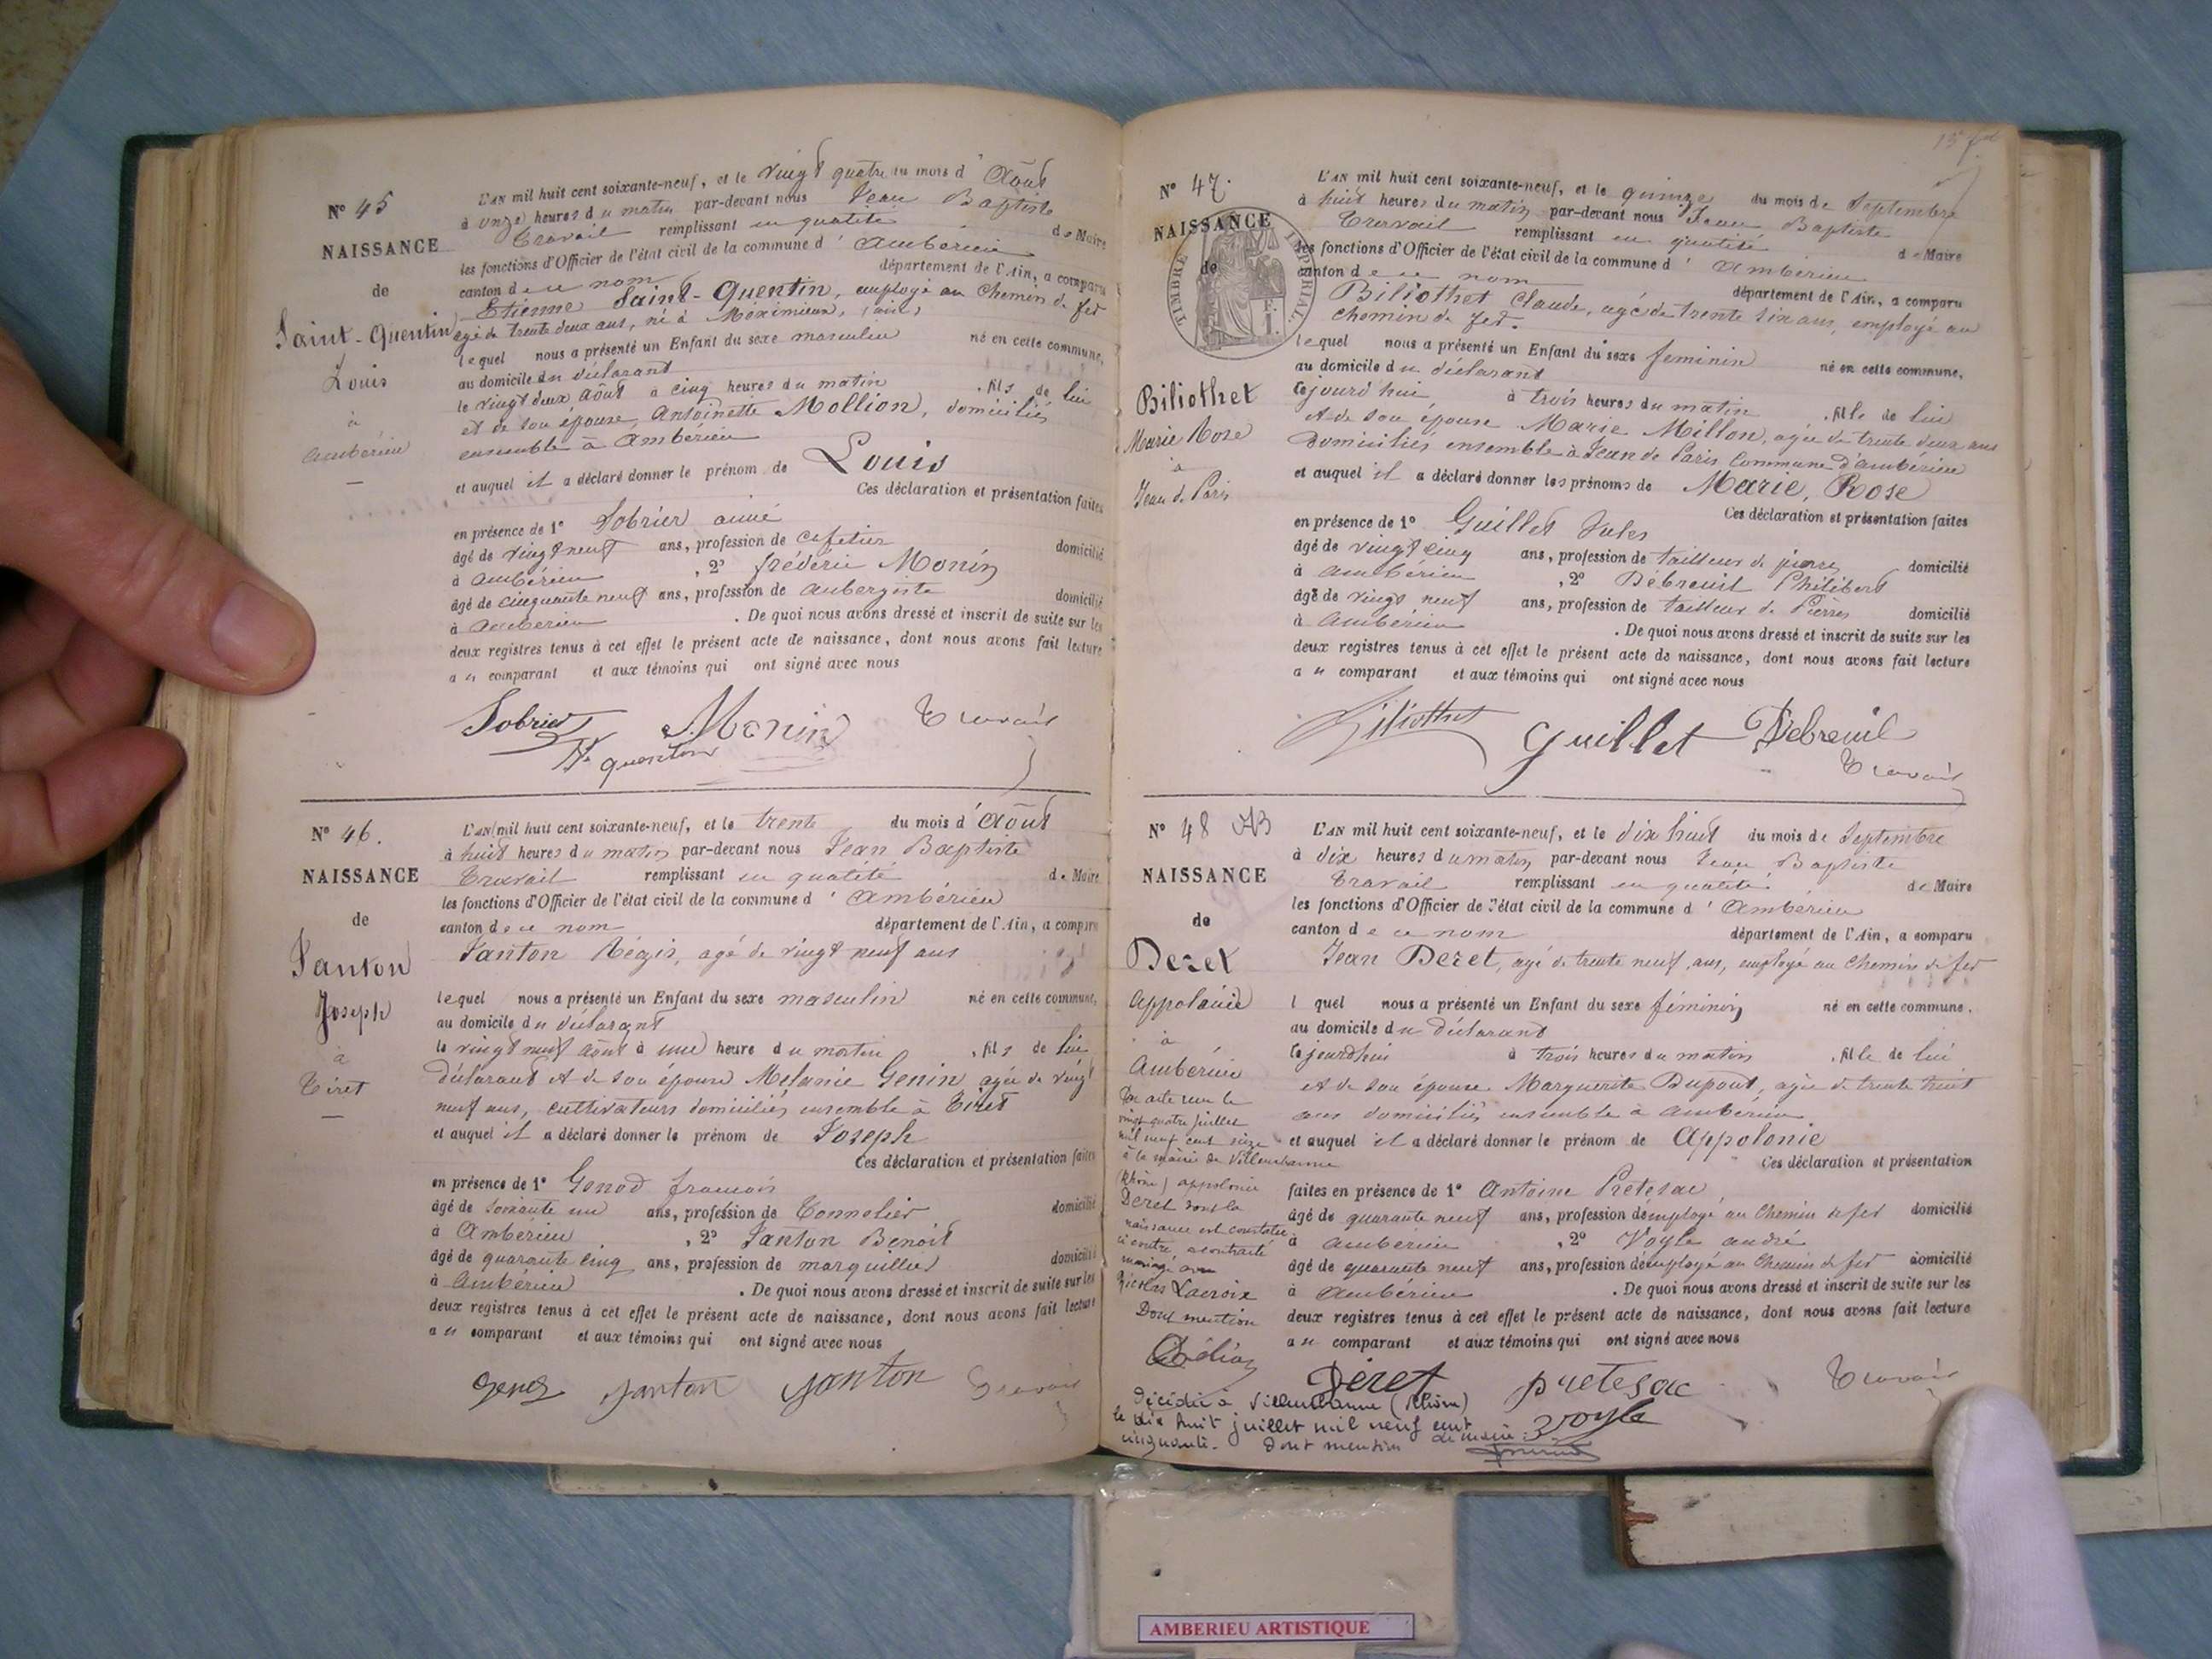 N° 45
NAISSANCE
de
Saint-Quentin
Louis
à
Ambérieu
L'AN mil huit cent soixante-neuf, et le vingt quatre du mois d'Août
à onze heures du matin par-devant nous Jean Baptiste
Travail remplissant en qualité de Maire
les fonctions d'Officier de l'état civil de la commune d'Ambérieu
canton de ce nom département de l'Ain, a comparu
Etienne Saint-Quentin, employé au Chemin de fer
agé de trente deux ans, né à Méximieux, (ain)
lequel nous a présenté un Enfant du sexe masculin né en cette commune,
au domicile du déclarant
le vingt deux Août à cinq heures du matin, fils de lui
et de son épouse, Antoinette Mollion, domiciliés
ensemble à Ambérieu
et auquel il a déclaré donner le prénom de Louis
Ces déclaration et présentation faites
en présence de 1° Sobrier aimé
âgé de vingt neuf ans, profession de cafetier domicilié
à Ambérieu, 2° frédéric Monin
âgé de cinquante neuf ans, profession de aubergiste domicilié
à Ambérieu. De quoi nous avons dressé et inscrit de suite sur les
deux registres tenus à cet effet le présent acte de naissance, dont nous avons fait lecture
au comparant et aux témoins qui ont signé avec nous
Sobrier Monin Travail
St quentin
N° 46.
NAISSANCE
de
Santon
Joseph
à
Tiret
L'AN mil huit cent soixante-neuf, et le trente du mois d'Août
à huit heures du matin par-devant nous Jean Baptiste
Travail remplissant en qualité de Maire
les fonctions d'Officier de l'état civil de la commune d'Ambérieu
canton de ce nom département de l'Ain, a comparu
Santon Régis, agé de vingt neuf ans
lequel nous a présenté un Enfant du sexe masculin né en cette commune,
au domicile du déclarant
le vingt neuf août à une heure du matin, fils de lui
déclarant et de son épouse Melanie Genin agée de vingt
neuf ans, cultivateurs domiciliés ensemble à Tiret
et auquel il a déclaré donner le prénom de Joseph
Ces déclaration et présentation faites
en présence de 1° Genod francois
âgé de soixante un ans, profession de Tonnelier domicilié
à Ambérieu, 2° Santon Benoit
âgé de quarante cinq ans, profession de marguillier domicilié
à Ambérieu. De quoi nous avons dressé et inscrit de suite sur les
deux registres tenus à cet effet le présent acte de naissance, dont nous avons fait lecture
au comparant et aux témoins qui ont signé avec nous
Santon Santon Travail
N° 47.
NAISSANCE
de
TIMBRE IMPÉRIAL
Biliothet
Marie Rose
à
Jean de Paris
L'AN mil huit cent soixante-neuf, et le quinze du mois de Septembre
à huit heures du matin par-devant nous Jean Baptiste
Travail remplissant en qualité de Maire
les fonctions d'Officier de l'état civil de la commune d'Ambérieu
canton de ce nom département de l'Ain, a comparu
Biliothet Claude, agé de trente six ans, employé au
chemin de fer.
lequel nous a présenté un Enfant du sexe feminin né en cette commune,
au domicile du déclarant
cejourd'hui à trois heures du matin, fille de lui
et de son épouse Marie Millon, agée de trente deux ans
domiciliés ensemble à Jean de Paris Commune d'ambérieu
et auquel il a déclaré donner les prénoms de Marie, Rose
Ces déclaration et présentation faites
en présence de 1° Guillet Jules
âgé de vingt cinq ans, profession de tailleur de pierre domicilié
à Ambérieu, 2° Debreuil Philibert
âgé de vingt neuf ans, profession de tailleur de Pierres domicilié
à Ambérieu. De quoi nous avons dressé et inscrit de suite sur les
deux registres tenus à cet effet le présent acte de naissance, dont nous avons fait lecture
au comparant et aux témoins qui ont signé avec nous
Biliothet Guillet Debreuil
Travail
N° 48
NAISSANCE
de
Deret
Appolonie
à
Ambérieu
Par acte reçu le
vingt quatre juillet
mil neuf cent seize
à la mairie de Villeurbanne
(Rhône) appolonie
Deret dont la
naissance est constatée
ci contre, a contracté
mariage avec
Nicolas Lacroix
Dont mention
L'AN mil huit cent soixante-neuf, et le dix huit du mois de Septembre
à dix heures du matin par-devant nous Jean Baptiste
Travail remplissant en qualité de Maire
les fonctions d'Officier de l'état civil de la commune d'Ambérieu
canton de ce nom département de l'Ain, a comparu
Jean Deret, agé de trente neuf ans, employé au chemin de fer
l quel nous a présenté un Enfant du sexe féminin né en cette commune.
au domicile du déclarant
cejourd'hui à trois heures du matin, fille de lui
et de son épouse Marguerite Dupont, agée de trente huit
ans domiciliés ensemble à Ambérieu
et auquel il a déclaré donner le prénom de Appolonie
Ces déclaration et présentation
faites en présence de 1° Antoine Pretesac
âgé de quarante neuf ans, profession d'employé au Chemin de fer domicilié
à Ambérieu, 2° Voyle andré
âgé de quarante neuf ans, profession d'employé au Chemin de fer domicilié
à Ambérieu. De quoi nous avons dressé et inscrit de suite sur les
deux registres tenus à cet effet le présent acte de naissance, dont nous avons fait lecture
au comparant et aux témoins qui ont signé avec nous
Déret pretesac Travail
Voyle
Décédée à Villeurbanne (Rhône)
le dix huit juillet mil neuf cent
cinquante. Dont mention
AMBERIEU ARTISTIQUE